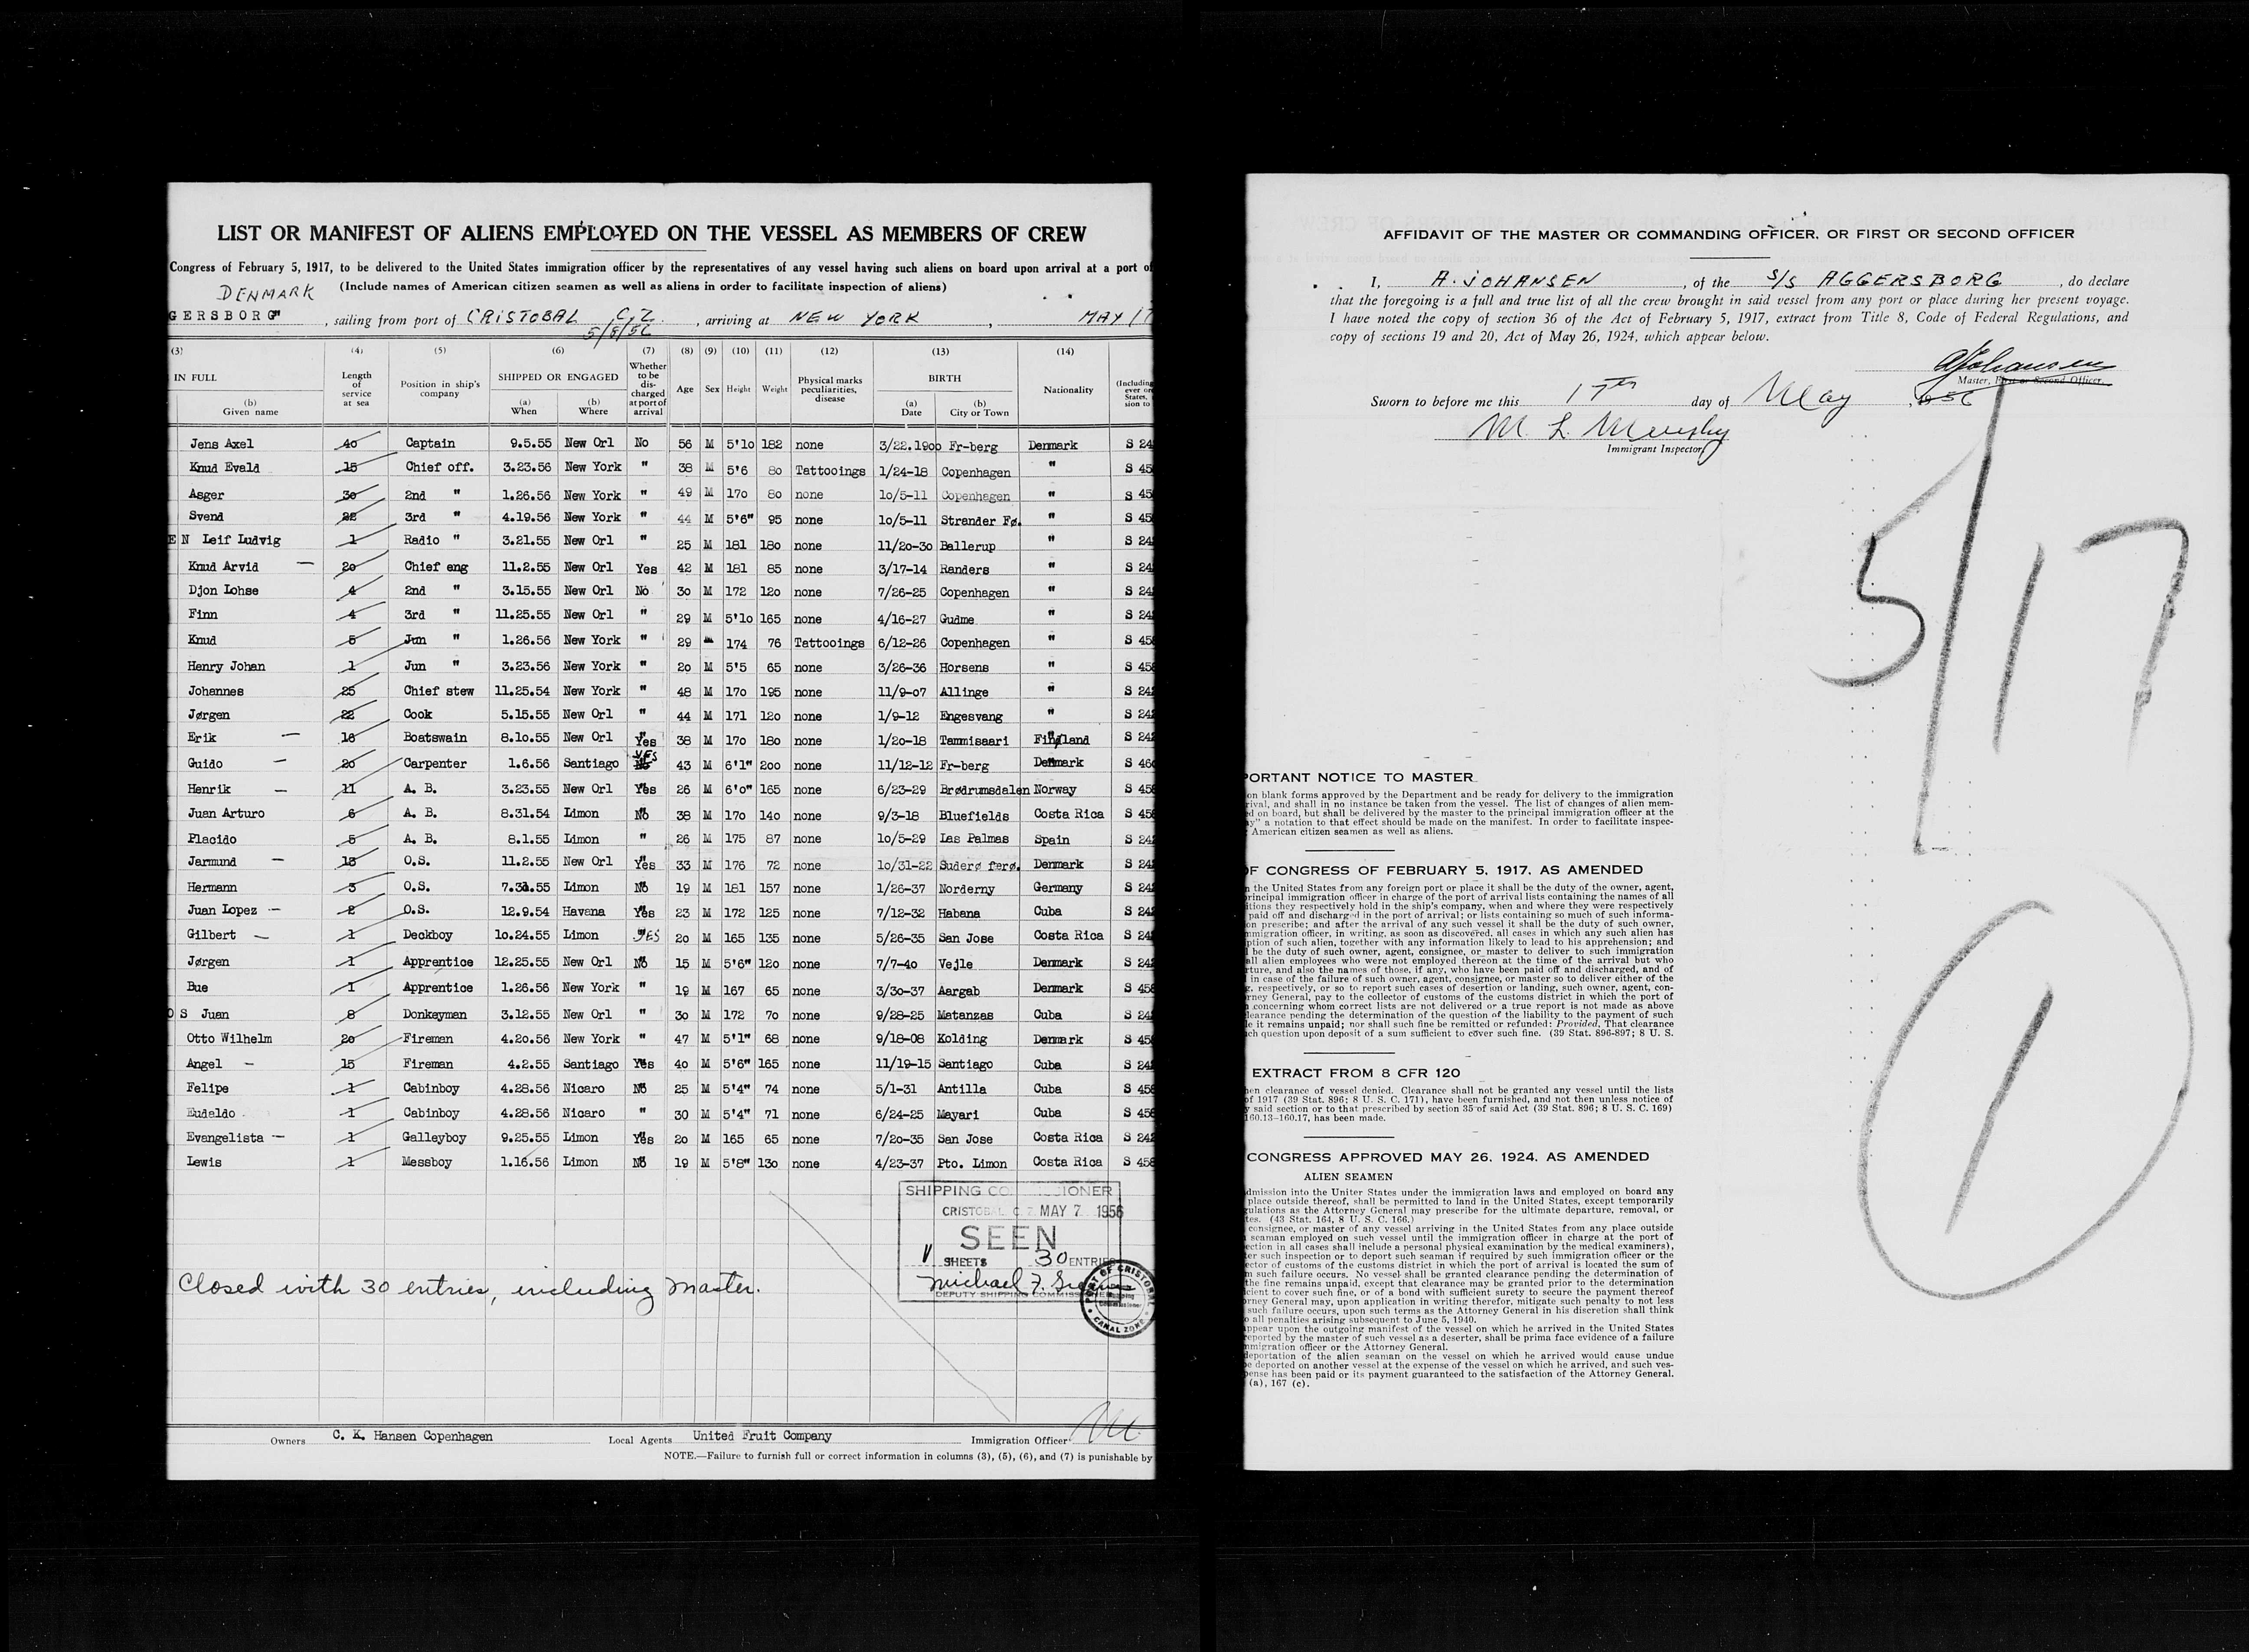 LIST OR MANIFEST OF ALIENS EMPLOYED ON THE VESSEL AS MEMBERS OF CREW
Congress of February 5, 1917, to be delivered to the United States immigration officer by the representatives of any vessel having such aliens on board upon arrival at a port of
DENMARK (Include names of American citizen seamen as well as aliens in order to facilitate inspection of aliens)
GERSBORG", sailing from port of CRISTOBAL C,Z. 5/8/56, arriving at NEW YORK, MAY 17
(3) (4) (5) (6) (7) (8) (9) (10) (11) (12) (13) (14)
IN FULL Length of service at sea Position in ship's company SHIPPED OR ENGAGED Whether to be discharged at port of arrival Age Sex Height Weight Physical marks peculiarities, disease BIRTH Nationality (Including
(b) Given name (a) When (b) Where (a) Date (b) City or Town
Jens Axel 40 Captain 9.5.55 New Orl No 56 M 5'10 182 none 3/22.1900 Fr-berg Denmark S 24
Knud Evald 15 Chief off. 3.23.56 New York " 38 M 5'6 80 Tattooings 1/24-18 Copenhagen " S 45
Asger 30 2nd " 1.26.56 New York " 49 M 170 80 none 10/5-11 Copenhagen " S 45
Svend 22 3rd " 4.19.56 New York " 44 M 5'6" 95 none 10/5-11 Strander Fø. " S 45
EN Leif Ludvig 1 Radio " 3.21.55 New Orl " 25 M 181 180 none 11/20-30 Ballerup " S 24
Knud Arvid — 20 Chief eng 11.2.55 New Orl Yes 42 M 181 85 none 3/17-14 Randers " S 24
Djon Lohse 4 2nd " 3.15.55 New Orl No 30 M 172 120 none 7/26-25 Copenhagen " S 24
Finn 4 3rd " 11.25.55 New Orl " 29 M 5'10 165 none 4/16-27 Gudme " S 24
Knud 5 Jun " 1.26.56 New York " 29 174 76 Tattooings 6/12-26 Copenhagen " S 45
Henry Johan 1 Jun " 3.23.56 New York " 20 M 5'5 65 none 3/26-36 Horsens " S 45
Johannes 25 Chief stew 11.25.54 New York " 48 M 170 195 none 11/9-07 Allinge " S 24
Jørgen 22 Cook 5.15.55 New Orl " 44 M 171 120 none 1/9-12 Engesvang " S 24
Erik — 16 Boatswain 8.10.55 New Orl Yes 38 M 170 180 none 1/20-18 Tammisaari Finland S 24
Guido — 20 Carpenter 1.6.56 Santiago YES No 43 M 6'1" 200 none 11/12-12 Fr-berg Denmark S 46
Henrik — 11 A. B. 3.23.55 New Orl Yes 26 M 6'0" 165 none 6/23-29 Brødrumsdalen Norway S 45
Juan Arturo 6 A. B. 8.31.54 Limon No 38 M 170 140 none 9/3-18 Bluefields Costa Rica S 45
Placido 5 A. B. 8.1.55 Limon " 26 M 175 87 none 10/5-29 Las Palmas Spain S 24
Jarmund — 13 O.S. 11.2.55 New Orl Yes 33 M 176 72 none 10/31-22 Suderø færø. Denmark S 24
Hermann 3 O.S. 7.31.55 Limon No 19 M 181 157 none 1/26-37 Norderny Germany S 24
Juan Lopez — 2 O.S. 12.9.54 Havana Yes 23 M 172 125 none 7/12-32 Habana Cuba S 24
Gilbert — 1 Deckboy 10.24.55 Limon YES 20 M 165 135 none 5/26-35 San Jose Costa Rica S 24
Jørgen 1 Apprentice 12.25.55 New Orl No 15 M 5'6" 120 none 7/7-40 Vejle Denmark S 24
Bue 1 Apprentice 1.26.56 New York " 19 M 167 65 none 3/30-37 Aargab Denmark S 45
OS Juan 8 Donkeyman 3.12.55 New Orl " 30 M 172 70 none 9/28-25 Matanzas Cuba S 24
Otto Wilhelm 20 Fireman 4.20.56 New York " 47 M 5'1" 68 none 9/18-08 Kolding Denmark S 45
Angel — 15 Fireman 4.2.55 Santiago Yes 40 M 5'6" 165 none 11/19-15 Santiago Cuba S 24
Felipe 1 Cabinboy 4.28.56 Nicaro No 25 M 5'4" 74 none 5/1-31 Antilla Cuba S 45
Eudaldo 1 Cabinboy 4.28.56 Nicaro " 30 M 5'4" 71 none 6/24-25 Mayari Cuba S 45
Evangelista — 1 Galleyboy 9.25.55 Limon Yes 20 M 165 65 none 7/20-35 San Jose Costa Rica S 24
Lewis 1 Messboy 1.16.56 Limon No 19 M 5'8" 130 none 4/23-37 Pto. Limon Costa Rica S 45
SHIPPING CO IONER
CRISTOBAL C Z MAY 7 1956
SEEN
SHEETS 30 ENTRIES
Michael F.
DEPUTY SHIPPING COMMISSIONER
PORT OF CRISTOBAL
CANAL ZONE
Closed with 30 entries, including Master.
Owners C. K. Hansen Copenhagen Local Agents United Fruit Company Immigration Officer
NOTE.—Failure to furnish full or correct information in columns (3), (5), (6), and (7) is punishable by
AFFIDAVIT OF THE MASTER OR COMMANDING OFFICER, OR FIRST OR SECOND OFFICER
I, A. JOHANSEN, of the S/S AGGERSBORG, do declare
that the foregoing is a full and true list of all the crew brought in said vessel from any port or place during her present voyage.
I have noted the copy of section 36 of the Act of February 5, 1917, extract from Title 8, Code of Federal Regulations, and
copy of sections 19 and 20, Act of May 26, 1924, which appear below.
AJohansen
Master, First or Second Officer.
Sworn to before me this 17th day of May, 1956
M. L. Murphy
Immigrant Inspector
5/17
1
PORTANT NOTICE TO MASTER
on blank forms approved by the Department and be ready for delivery to the immigration
rival, and shall in no instance be taken from the vessel. The list of changes of alien mem-
d on board, but shall be delivered by the master to the principal immigration officer at the
y" a notation to that effect should be made on the manifest. In order to facilitate inspec-
American citizen seamen as well as aliens.
OF CONGRESS OF FEBRUARY 5, 1917, AS AMENDED
n the United States from any foreign port or place it shall be the duty of the owner, agent,
rincipal immigration officer in charge of the port of arrival lists containing the names of all
itions they respectively hold in the ship's company, when and where they were respectively
paid off and discharged in the port of arrival; or lists containing so much of such informa-
on prescribe; and after the arrival of any such vessel it shall be the duty of such owner,
mmigration officer, in writing, as soon as discovered, all cases in which any such alien has
ption of such alien, together with any information likely to lead to his apprehension; and
l be the duty of such owner, agent, consignee, or master to deliver to such immigration
all alien employees who were not employed thereon at the time of the arrival but who
rture, and also the names of those, if any, who have been paid off and discharged, and of
in case of the failure of such owner, agent, consignee, or master so to deliver either of the
g, respectively, or so to report such cases of desertion or landing, such owner, agent, con-
rney General, pay to the collector of customs of the customs district in which the port of
concerning whom correct lists are not delivered or a true report is not made as above
learance pending the determination of the question of the liability to the payment of such
le it remains unpaid; nor shall such fine be remitted or refunded: Provided, That clearance
uch question upon deposit of a sum sufficient to cover such fine. (39 Stat. 896-897; 8 U. S.
EXTRACT FROM 8 CFR 120
hen clearance of vessel denied. Clearance shall not be granted any vessel until the lists
of 1917 (39 Stat. 896; 8 U. S. C. 171), have been furnished, and not then unless notice of
y said section or to that prescribed by section 35 of said Act (39 Stat. 896; 8 U. S. C. 169)
160.13-160.17, has been made.
CONGRESS APPROVED MAY 26, 1924, AS AMENDED
ALIEN SEAMEN
dmission into the Uniter States under the immigration laws and employed on board any
place outside thereof, shall be permitted to land in the United States, except temporarily
gulations as the Attorney General may prescribe for the ultimate departure, removal, or
tes. (43 Stat. 164, 8 U. S. C. 166.)
consignee, or master of any vessel arriving in the United States from any place outside
seaman employed on such vessel until the immigration officer in charge at the port of
ection in all cases shall include a personal physical examination by the medical examiners),
ter such inspection or to deport such seaman if required by such immigration officer or the
ector of customs of the customs district in which the port of arrival is located the sum of
m such failure occurs. No vessel shall be granted clearance pending the determination of
the fine remains unpaid, except that clearance may be granted prior to the determination
icient to cover such fine, or of a bond with sufficient surety to secure the payment thereof
rney General may, upon application in writing therefor, mitigate such penalty to not less
such failure occurs, upon such terms as the Attorney General in his discretion shall think
o all penalties arising subsequent to June 5, 1940.
appear upon the outgoing manifest of the vessel on which he arrived in the United States
reported by the master of such vessel as a deserter, shall be prima facie evidence of a failure
mmigration officer or the Attorney General.
deportation of the alien seaman on the vessel on which he arrived would cause undue
be deported on another vessel at the expense of the vessel on which he arrived, and such ves-
pense has been paid or its payment guaranteed to the satisfaction of the Attorney General.
(a), 167 (c).